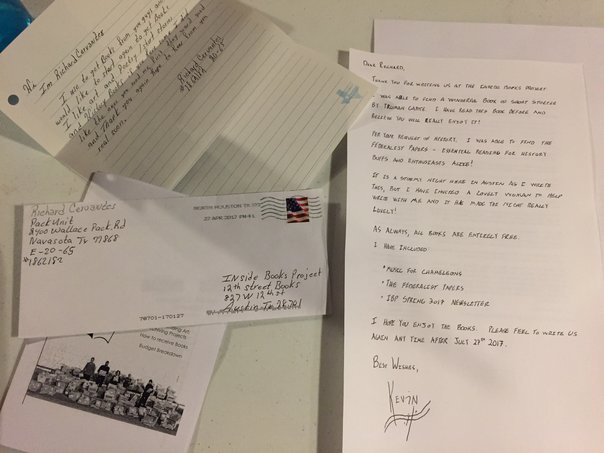 Hi
Im Richard Cervantes
I use do get Books from you guys and
want to start again do get Books
I like art and Poetry short stories
and
like the
and Thank you again Hope to hear from you
real soon.
Richard Cervantes
#1862182
E-20-65
Richard Cervantes
Pack Unit
2400 Wallace Pack Rd
Navasota Tx 77868
E-20-65
#1862182
NORTH HOUSTON TX 773
27 APR 2017 PM 4 L
Inside Books Project
12th street Books
827 W 12th st
Austin Tx 78701
78701-170127
How to receive Books
Budget Breakdown
Dear Richard,
Thank you for writing us at the Inside Books Project
I was able to find a wonderful book of short stories
by Truman Capote. I have read this book before and
believe you will really enjoy it!
Per your request in history, I was able to find the
Federalist Papers - essential reading for history
buffs and enthusiasts alike!
It is a stormy night here in Austin as I write
this, but I have invited a lovely woman to help
write with me and it has made the night really
lovely!
As always, all books are entirely free.
I have included:
• Music for Chameleons
• The Federalist Papers
• IBP Spring 2017 Newsletter
I hope you enjoy the books. Please feel to write us
again any time after July 27th 2017.
Best Wishes,
Kevin